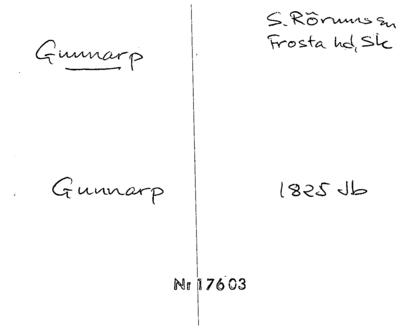 Gunnarp
S. Rörums sn
Frosta hd, Sk
Gunnarp
1825 Jb
Nr 17603